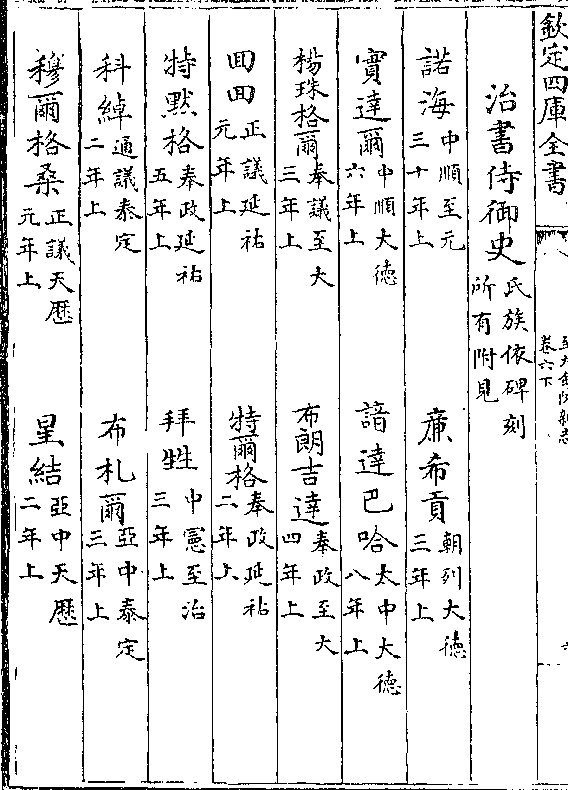 欽定四庫全書
卷六下
治書侍御史 氏族依碑刻所有附見
諾海 中順至元三十年上 廉希貢 朝列大德三年上
實達爾 中順大德六年上 諳達巴哈 太中大德八年上
楊珠格爾 奉議至大三年上 布朗吉達 奉政至大四年上
囬囬 正議延祐元年上 特爾格 奉政延祐二年上
特默格 奉政延祐五年上 拜甡 中憲至治三年上
科綽 通議泰定二年上 布札爾 亞中泰定三年上
穆爾格桑 正議天厯元年上 星結 亞中天厯二年上